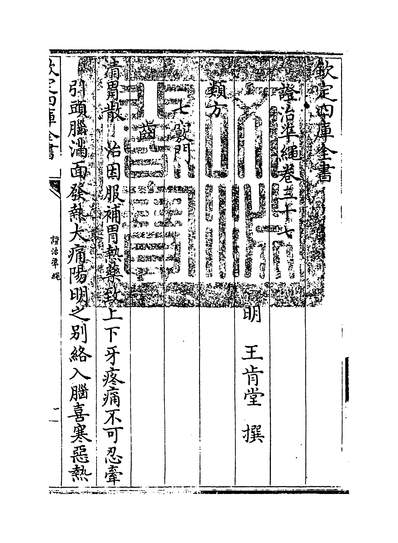 欽定四庫全書
證治準繩卷三十七
明 王肯堂 撰
類方
七竅門
齒
清胃散 治因服補胃熱藥致上下牙疼痛不可忍牽
引頭腦滿面發熱大痛陽明之别絡入腦喜寒惡熱
欽定四庫全書
證治準繩
一